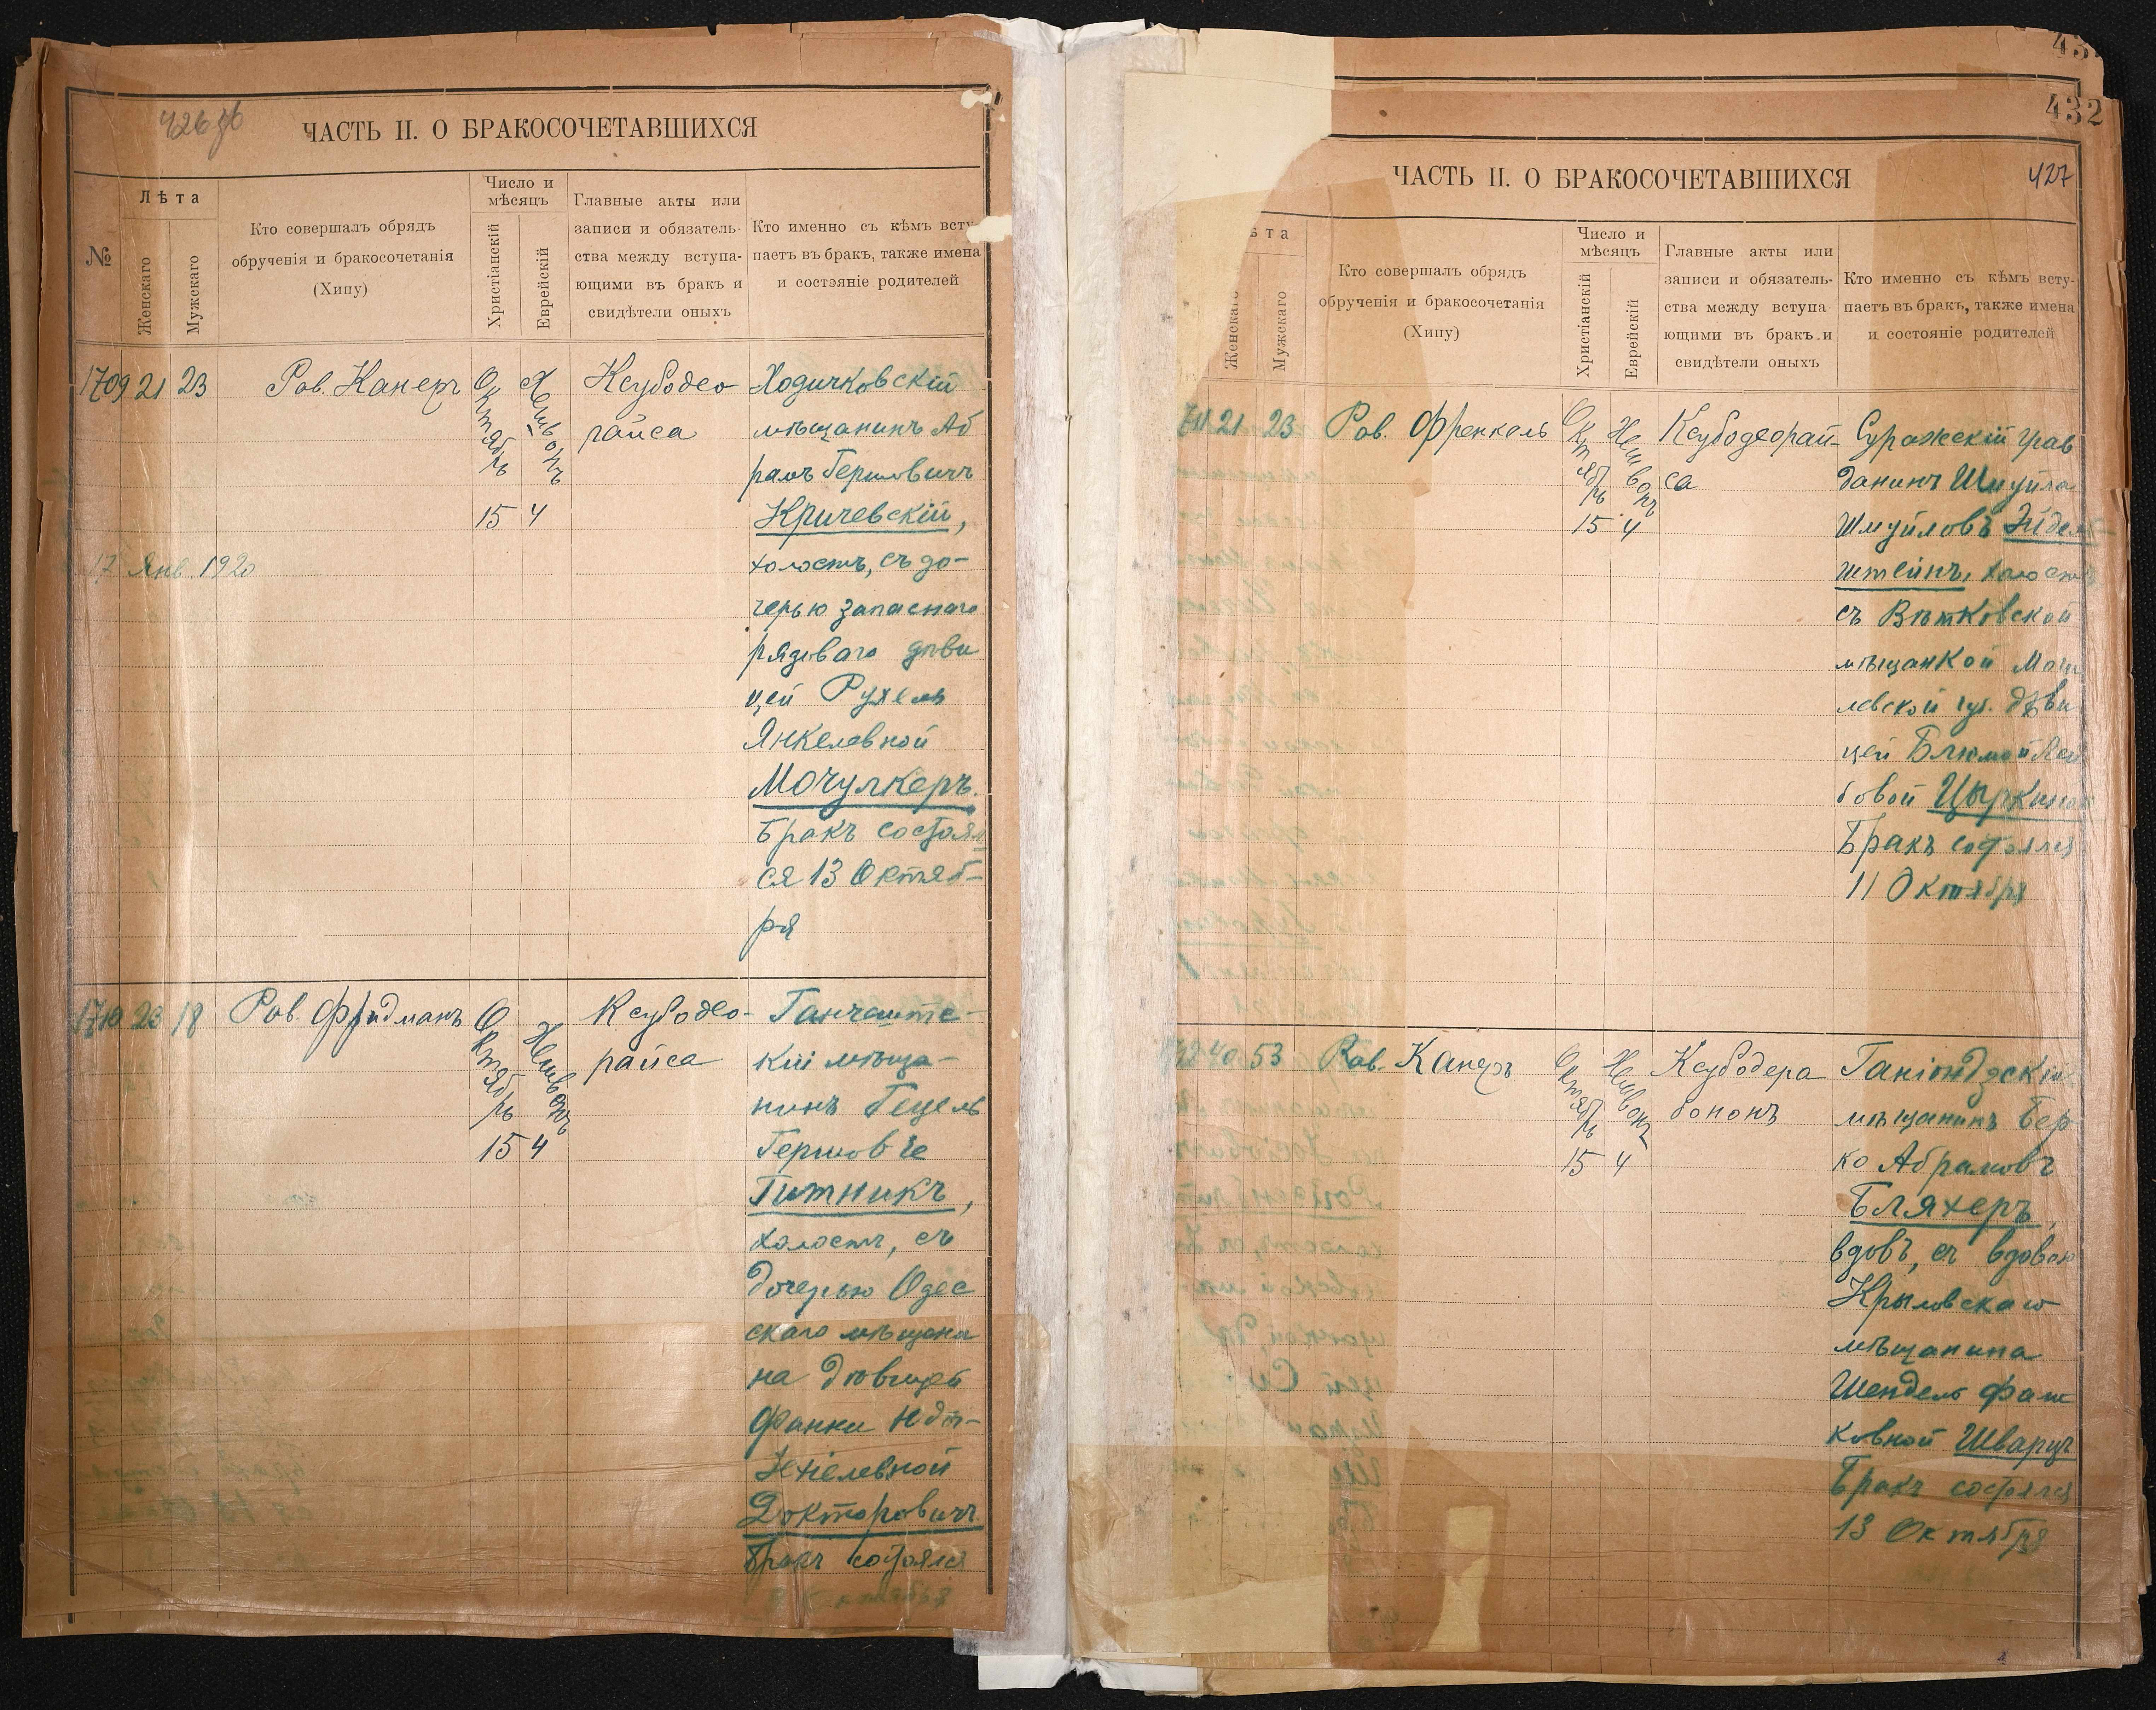 426 об
ЧАСТЬ II. О БРАКОСОЧЕТАВШИХСЯ
№
Лѣта
Женскаго
Мужскаго
Кто совершалъ обрядъ
обрученія и бракосочетанія
(Хипу)
Число и
мѣсяцъ
Христіанскій
Еврейскій
Главные акты или
записи и обязатель-
ства между вступа-
ющими въ бракъ и
свидѣтели оныхъ
Кто именно съ кѣмъ всту-
паетъ въ бракъ, также имена
и состояніе родителей
1709 21 23 Рав. Канеръ
Октябрь
15
Хешвонъ
4
Ксубодео
райса
Ходичковскій
мѣщанинъ Аб
рамъ Гершовичъ
Кричевскій,
холостъ, съ до-
черью запаснаго
рядоваго дѣви
цей Рухель
Янкелевной
Мочулкеръ.
Бракъ состоял
ся 13 Октяб-
ря
17 Янв. 1920
1710 23 18 Рав. Фридманъ
Октябрь
15
Хешвонъ
4
Ксубодео-
райса
Ганчештс-
кій мѣща-
нинъ Гецель
Гершов
Гитникъ,
холостъ, съ
дочерью Одес
скаго мѣщани
на дѣвицей
Фанни
Хіелевной
Докторовичъ
Бракъ состоялся
Октября
432
427
ЧАСТЬ II. О БРАКОСОЧЕТАВШИХСЯ
ѣта
Женскаго
Мужскаго
Кто совершалъ обрядъ
обрученія и бракосочетанія
(Хипу)
Число и
мѣсяцъ
Христіанскій
Еврейскій
Главные акты или
записи и обязатель-
ства между вступа-
ющими въ бракъ и
свидѣтели оныхъ
Кто именно съ кѣмъ всту-
паетъ въ бракъ, также имена
и состояніе родителей
711 21 23 Рав. Френкель
Октябрь
15
Хешвонъ
4
Ксубодеорай-
са
Суражскій граж
данинъ Шмуйла
Шмуйловъ Эйдель
штейнъ, холостъ
съ Вѣтковской
мѣщанкой Моги
левской губ. дѣви
цей Блюмой Лей
бовой Цыркиной
Бракъ состоялся
11 Октября
712 40 53 Рав. Канеръ
Октябрь
15
Хешвонъ
4
Ксубодера
бононъ
Ганіондзскій
мѣщанинъ Бер
ко Абрамовъ
Бляхеръ,
вдовъ, съ вдовою
Крыловскаго
мѣщанина
Шендель Фаи
ковной Шварцъ
Бракъ состоялся
13 Октября